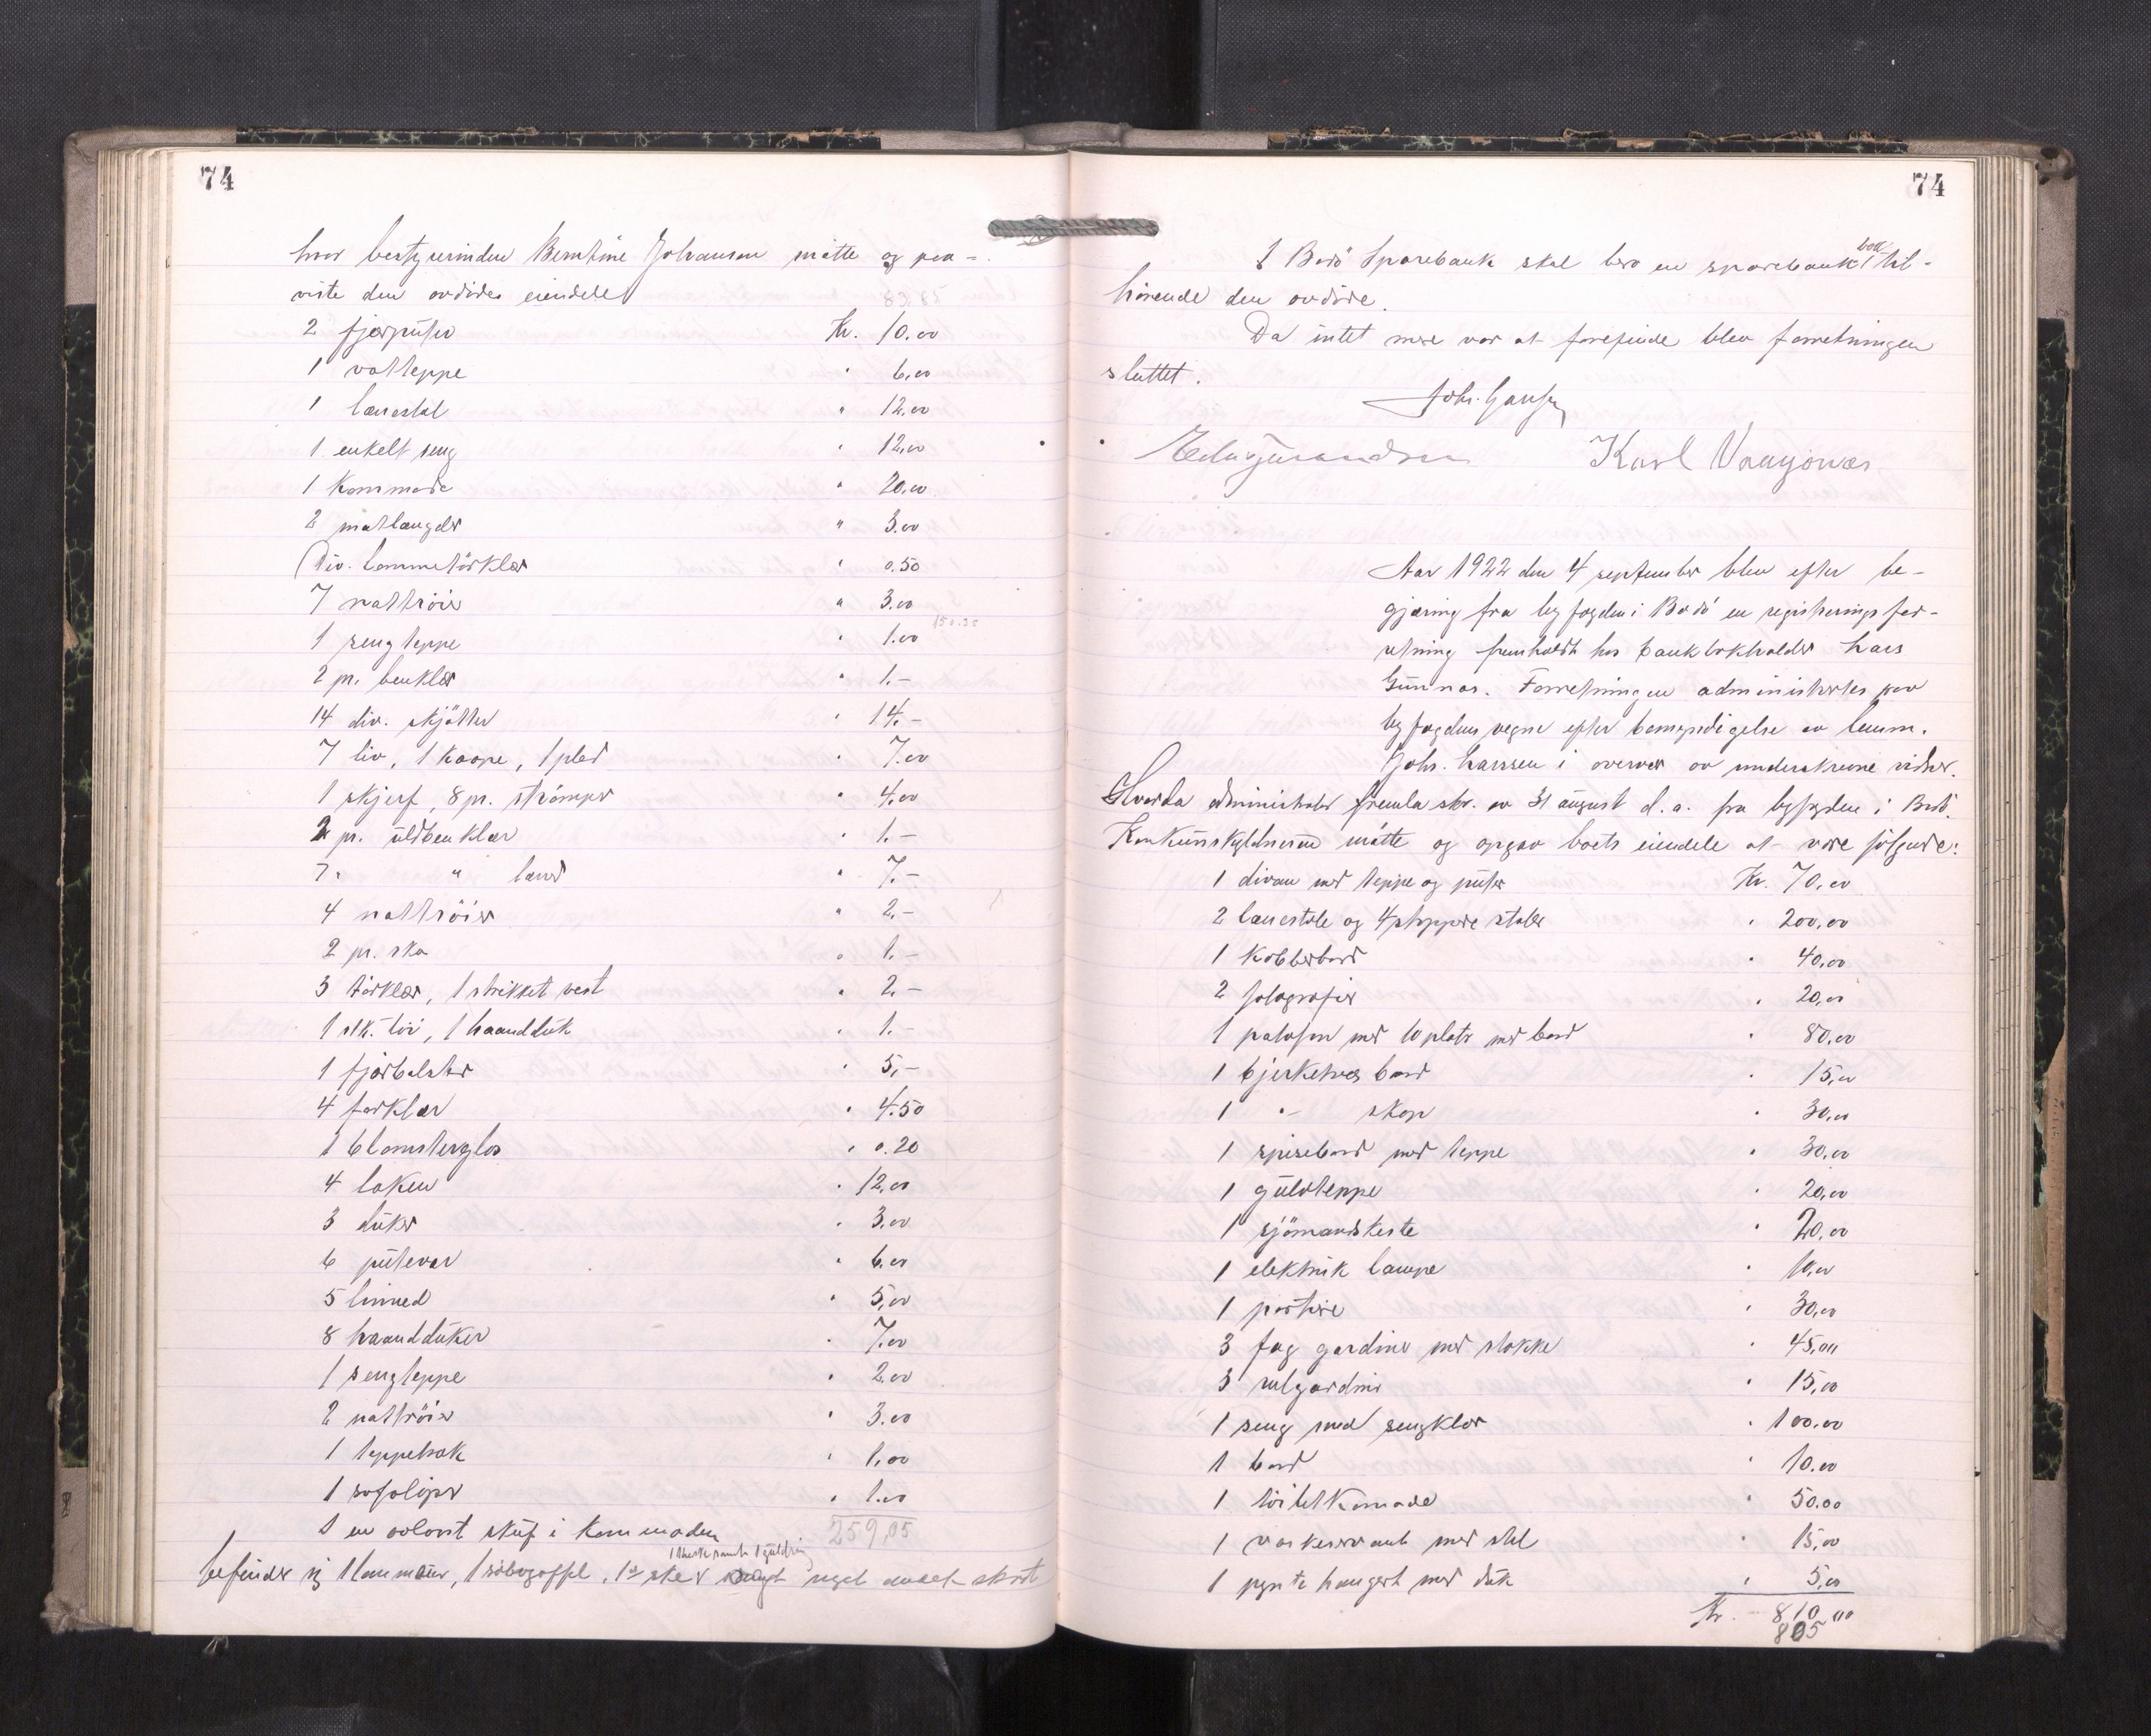 74
hvor bestyrerinden Berntine Johansen møtte og paa-
viste den avdødes eiendele
2 fjærputer Kr. 10.00
1 vatteppe " 6,00
1 lænestol " 12.00
1 enkelt seng " 12,00
1 Kommode " 20,00
2 matlaugder " 3.00
Div. lommetørklær " 0.50
7 nattrøier " 3.00
150.50
1 sengteppe " 1.00
2 pr. benklær " 1.-
14 div. skjørter " 14.-
7 liv, 1 kaape, 1 pled " 7.00
1 skjerf, 8 pr. strømper " 4,00
2 pr. uldbenklær " 1.-
7 " " 7.-
4 nattrøier " 2.-
2 pr. sko " 1.-
3 tørklær, 1 strikket vest " 2.-
1 stk. tøi, 1 haandduk " 1.-
1 fjærbolster " 5,-
4 forklær " 4.50
1 blomsterglas " 0.20
4 laken " 12,00
3 duker " 3.00
6 putevar " 6.00
5 linned " 5,00
8 haandduker " 7.00
1 sengteppe " 2.00
2 nattrøier " 3.00
1 teppebak " 1,00
1 sofaløper " 1.00
I en avlaast skuf i kommoden 259,05
1 guldring
befinder sig 1 lommeur, 1 sølvgaffel, 1 skee samt noget andet skrot
74
I Bodø Sparebank skal bero en sparebank bok til-
hørende den avdøde.
Da intet mere var at forefinde blev forretningen
sluttet.
Joh. Hansen
Karl Vaagønes
Aar 1922 den 4 september blev efter be-
gjæring fra byfogden i Bodø en registreringsfor-
retning fremholdt hos bankbokholder Lars
Gunnar. Forretningen administrertes paa
byfogdens vegne efter bemyndigelse av lensm.
Joh. Hanssen i overvær av underskrevne vidner.
Hvorda administrator fremla skr. av 31 august d.a. fra byfogden i Bodø.
Konkursskyldneren møtte og opgav boets eiendele at være følgende:
1 divan med teppe og puter Kr. 70,00
2 lænestole og 4 stoppede stoler " 200,00
1 Kobberbord " 40,00
2 fotografier " 20,00
1 patefon med 10 plater med bord " 80,00
1 bjerketræs bord " 15,00
1 "- skap " 30,00
1 spisebord med teppe " 30,00
1 gulvteppe " 20,00
1 sjømandskiste " 20,00
1 elektrisk lampe " 10,00
1 portiere " 30,00
3 fag gardiner med stokke " 45,00
3 rulgardiner " 15,00
1 seng med sengklær " 100.00
1 bord " 10.00
1 toiletkomode " 50.00
1 vaskeservant med stel " 15,00
1 pynte haugert med duk " 5,00
Kr. 810,00
805